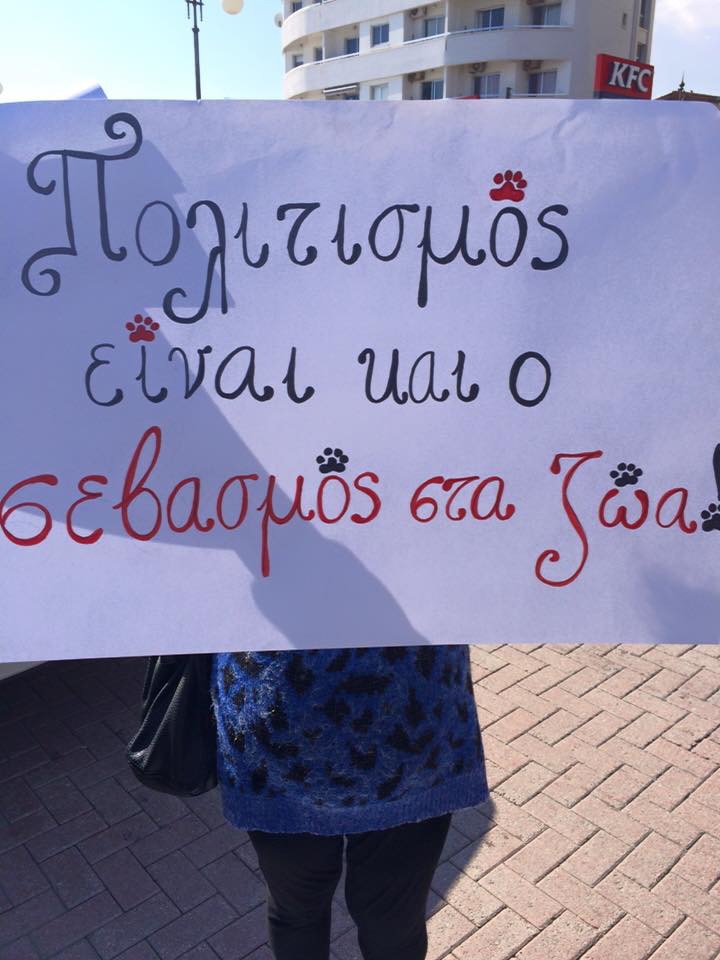 KFC
Πολιτισμός
είναι και ο
σεβασμός στα ζώα!